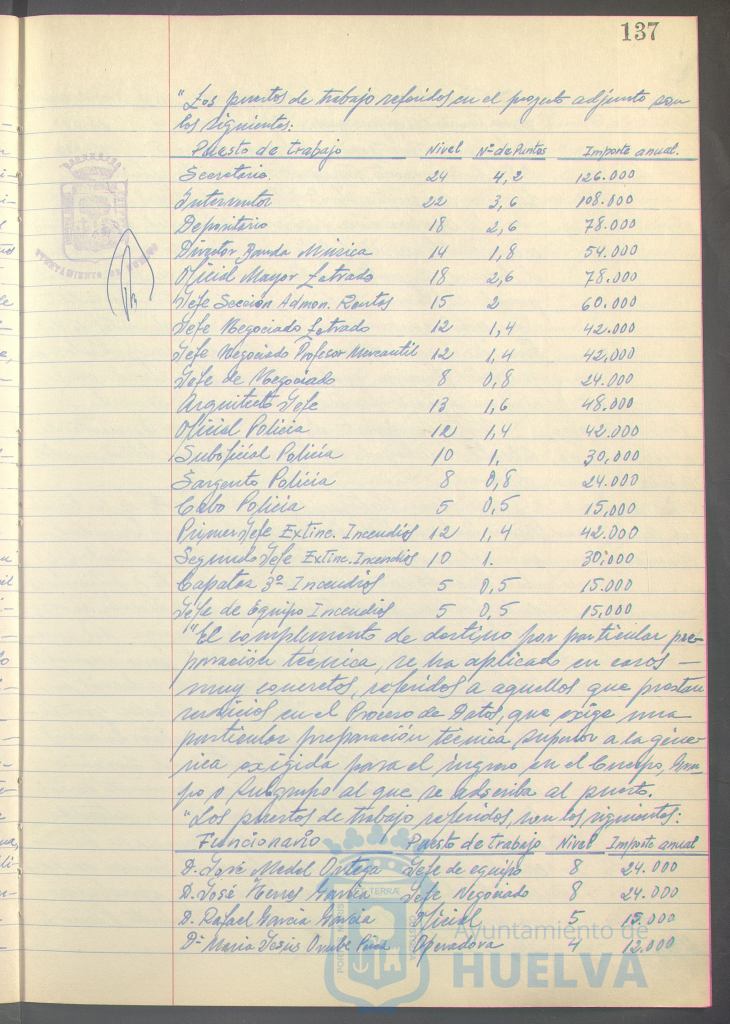 137
"Los puestos de trabajo referidos en el proyecto adjunto son
los siguientes:
Puesto de trabajo Nivel Nº de Puntos Importe anual.
Secretario. 24 4,2 126.000
Interventor 22 3,6 108.000
Depositario 18 2,6 78.000
Director Banda Música 14 1,8 54.000
Oficial Mayor Letrado 18 2,6 78.000
Jefe Sección Admon. Rentas 15 2 60.000
Jefe Negociado Letrado 12 1,4 42.000
Jefe Negociado Profesor Mercantil 12 1,4 42,000
Jefe de Negociado 8 0,8 24.000
Arquitecto Jefe 13 1,6 48.000
Oficial Policia 12 1,4 42.000
Suboficial Policía 10 1. 30,000
Sargento Policia 8 0,8 24.000
Cabo Policia 5 0,5 15,000
Primer Jefe Extinc. Incendios 12 1,4 42.000
Segundo Jefe Extinc. Incendios 10 1. 30,000
Capataz 3º Incendios 5 0,5 15.000
Jefe de Equipo Incendios 5 0,5 15,000
"El complemento de destino por particular pre-
paración técnica, se ha aplicado en casos —
muy concretos, referidos a aquellos que prestan
servicios en el Proceso de Datos, que exige una
particular preparación técnica superior a la gené-
rica exigida para el ingreso en el Cuerpo, Gru-
po o Subgrupo al que se adscriba al puesto.
"Los puestos de trabajo referidos, son los siguientes:
Funcionario Puesto de trabajo Nivel Importe anual
D. José Medel Ortega Jefe de equipo 8 24.000
D. José García Jefe Negociado 8 24.000
D. Rafael García García Oficial 5 15.000
Dª María Jesús Operadora 4 12.000
Ayuntamiento de
HUELVA